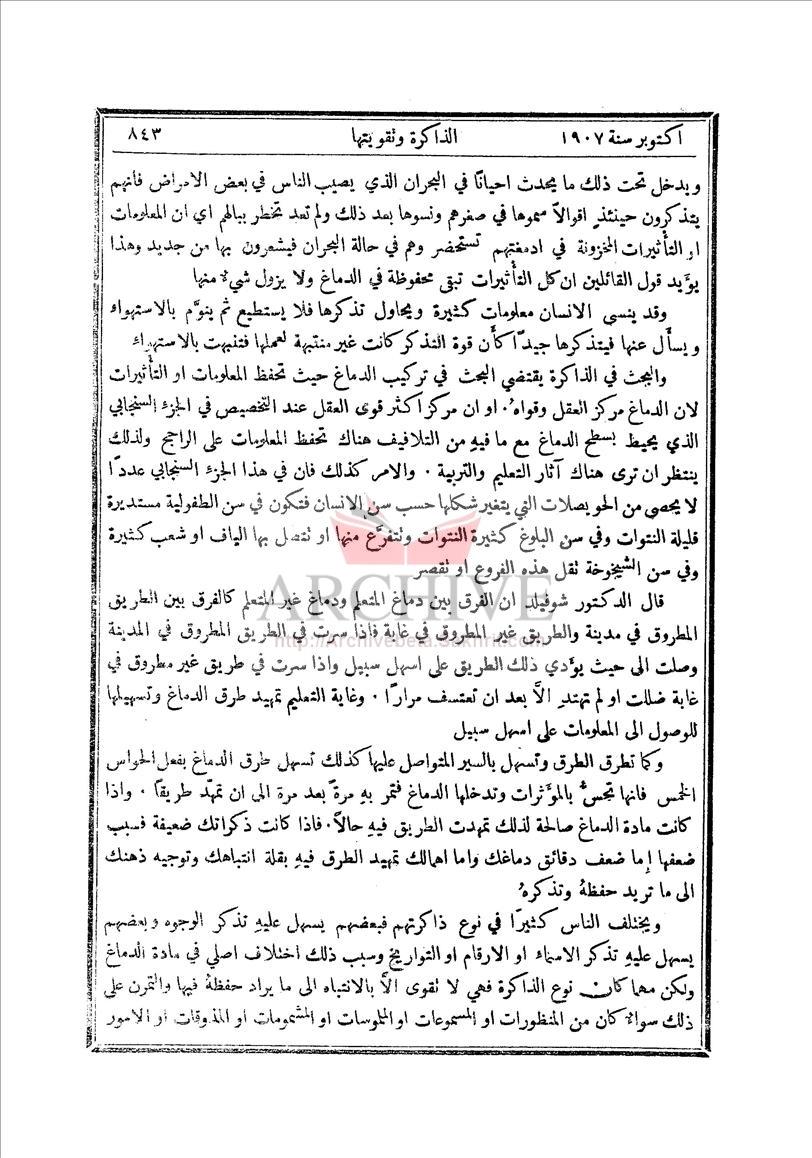 اكتوبر سنة ١٩٠٧ الذاكرة وتقويتها ٨٤٣
ويدخل تحت ذلك ما يحدث احيانًا في البحران الذي يصيب الناس في بعض الامراض فانهم
يتذكرون حينئذٍ اقوالاً سمعوها في صغرهم ونسوها بعد ذلك ولم تعد تخطر ببالهم اي ان المعلومات
او التأثيرات المخزونة في ادمغتهم تستحضر وهم في حالة البحران فيشعرون بها من جديد وهذا
يؤيد قول القائلين ان كل التأثيرات تبقى محفوظة في الدماغ ولا يزول شيءٌ منها
وقد ينسى الانسان معلومات كثيرة ويحاول تذكرها فلا يستطيع ثم ينوَّم بالاستهواء
ويسأَل عنها فيتذكرها جيدًا كأَن قوة التذكر كانت غير منتبهة لعملها فتنبهت بالاستهواء
والبحث في الذاكرة يقتضي البحث في تركيب الدماغ حيث تحفظ المعلومات او التأثيرات
لان الدماغ مركز العقل وقواهُ. او ان مركز اكثر قوى العقل عند التخصيص في الجزء السنجابي
الذي يحيط بسطح الدماغ مع ما فيهِ من التلافيف هناك تحفظ المعلومات على الراجح ولذلك
ينتظر ان ترى هناك آثار التعليم والتربية . والامر كذلك فان في هذا الجزء السنجابي عددًا
لا يحصى من الحويصلات التي يتغير شكلها حسب سن الانسان فتكون في سن الطفولية مستديرة
قليلة النتوات وفي سن البلوغ كثيرة النتوات وتتفرَّع منها او تتصل بها الياف او شعب كثيرة
وفي سن الشيخوخة تقل هذه الفروع او تقصر
قال الدكتور شوفيلد ان الفرق بين دماغ المتعلم ودماغ غير المتعلم كالفرق بين الطريق
المطروق في مدينة والطريق غير المطروق في غابة فاذا سرت في الطريق المطروق في المدينة
وصلت الى حيث يؤدي ذلك الطريق على اسهل سبيل واذا سرت في طريق غير مطروق في
غابة ضللت او لم تهتدِ الاَّ بعد ان تعتسف مرارًا . وغاية التعليم تمهيد طرق الدماغ وتسهيلها
للوصول الى المعلومات على اسهل سبيل
وكما تطرق الطرق وتسهل بالسير المتواصل عليها كذلك تسهل طرق الدماغ بفعل الحواس
الخمس فانها تحسُّ بالمؤثرات وتدخلها الدماغ فتمر بهِ مرةً بعد مرة الى ان تمهّد طريقًا . واذا
كانت مادة الدماغ صالحة لذلك تمهدت الطريق فيهِ حالاً. فاذا كانت ذكراتك ضعيفة فسبب
ضعفها إِما ضعف دقائق دماغك واما اهمالك تمهيد الطرق فيهِ بقلة انتباهك وتوجيه ذهنك
الى ما تريد حفظهُ وتذكرهُ
ويختلف الناس كثيرًا في نوع ذاكرتهم فبعضهم يسهل عليهِ تذكر الوجوه وبعضهم
يسهل عليهِ تذكر الاسماء او الارقام او التواريخ وسبب ذلك اختلاف اصلي في مادة الدماغ
ولكن مهما كان نوع الذاكرة فهي لا تقوى الاَّ بالانتباه الى ما يراد حفظهُ فيها والتمرن على
ذلك سواءٌ كان من المنظورات او المسموعات او الملموسات او المشمومات او المذوقات او الامور
ARCHIVE
http://Archivebeta.Sakhrit.com